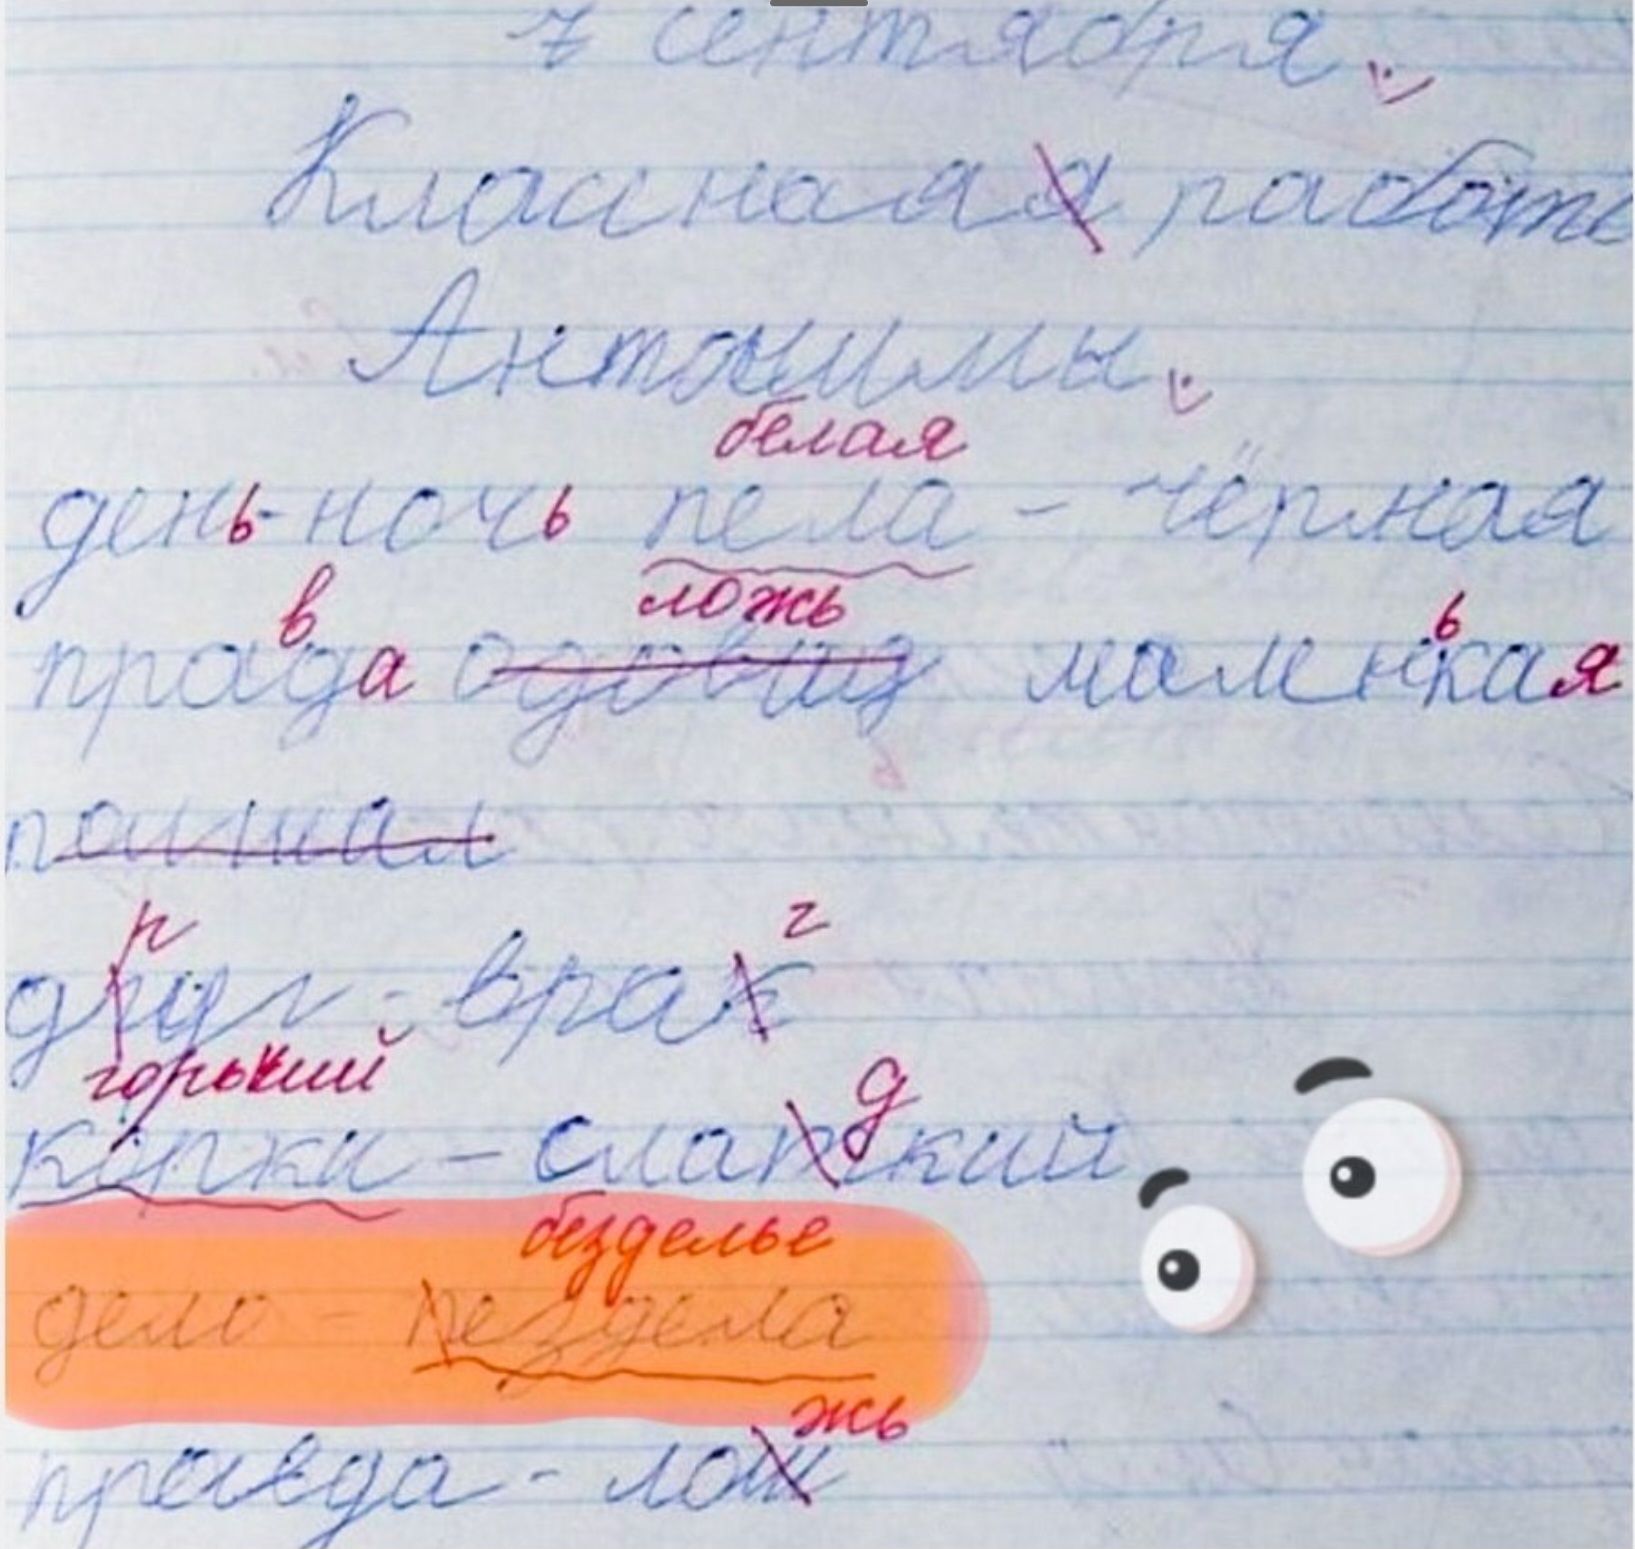 7 сентября.
Классная я работа
Антонимы.
белая
день-ночь пела - чёрная
в ложь ь
прада маленкая
р г
друг - врак
горький д
коржи - слапкий
безделье
дело - пездела
жь
правда - лош